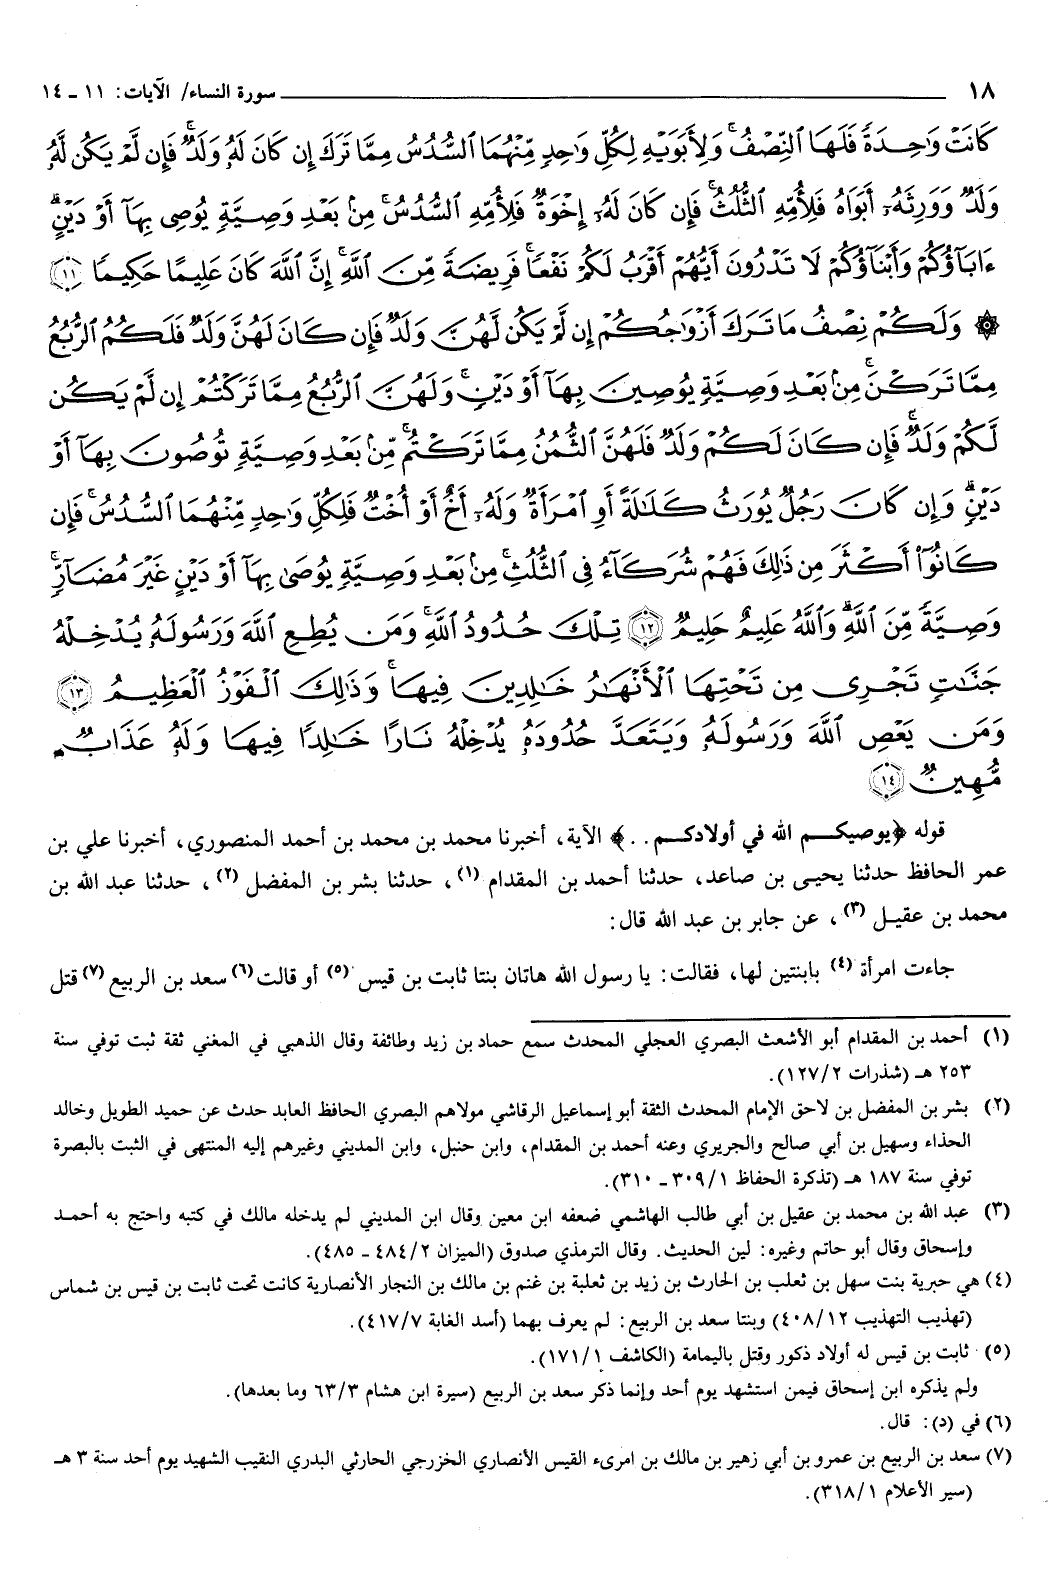 ١٨ سورة النساء/ الآيات: ١١ ـ ١٤
كَانَتْ وَٰحِدَةً فَلَهَا ٱلنِّصْفُۚ وَلِأَبَوَيْهِ لِكُلِّ وَٰحِدٍ مِّنْهُمَا ٱلسُّدُسُ مِمَّا تَرَكَ إِن كَانَ لَهُۥ وَلَدٌۚ فَإِن لَّمْ يَكُن لَّهُۥ
وَلَدٌ وَوَرِثَهُۥٓ أَبَوَاهُ فَلِأُمِّهِ ٱلثُّلُثُۚ فَإِن كَانَ لَهُۥٓ إِخْوَةٌ فَلِأُمِّهِ ٱلسُّدُسُۚ مِنۢ بَعْدِ وَصِيَّةٍ يُوصِى بِهَآ أَوْ دَيْنٍۗ
ءَابَآؤُكُمْ وَأَبْنَآؤُكُمْ لَا تَدْرُونَ أَيُّهُمْ أَقْرَبُ لَكُمْ نَفْعًاۚ فَرِيضَةً مِّنَ ٱللَّهِۗ إِنَّ ٱللَّهَ كَانَ عَلِيمًا حَكِيمًا ١١
۞ وَلَكُمْ نِصْفُ مَا تَرَكَ أَزْوَٰجُكُمْ إِن لَّمْ يَكُن لَّهُنَّ وَلَدٌۚ فَإِن كَانَ لَهُنَّ وَلَدٌ فَلَكُمُ ٱلرُّبُعُ
مِمَّا تَرَكْنَۚ مِنۢ بَعْدِ وَصِيَّةٍ يُوصِينَ بِهَآ أَوْ دَيْنٍۚ وَلَهُنَّ ٱلرُّبُعُ مِمَّا تَرَكْتُمْ إِن لَّمْ يَكُن
لَّكُمْ وَلَدٌۚ فَإِن كَانَ لَكُمْ وَلَدٌ فَلَهُنَّ ٱلثُّمُنُ مِمَّا تَرَكْتُمۚ مِّنۢ بَعْدِ وَصِيَّةٍ تُوصُونَ بِهَآ أَوْ
دَيْنٍۗ وَإِن كَانَ رَجُلٌ يُورَثُ كَلَـٰلَةً أَوِ ٱمْرَأَةٌ وَلَهُۥٓ أَخٌ أَوْ أُخْتٌ فَلِكُلِّ وَٰحِدٍ مِّنْهُمَا ٱلسُّدُسُۚ فَإِن
كَانُوٓا۟ أَكْثَرَ مِن ذَٰلِكَ فَهُمْ شُرَكَآءُ فِى ٱلثُّلُثِۚ مِنۢ بَعْدِ وَصِيَّةٍ يُوصَىٰ بِهَآ أَوْ دَيْنٍ غَيْرَ مُضَآرٍّۚ
وَصِيَّةً مِّنَ ٱللَّهِۗ وَٱللَّهُ عَلِيمٌ حَلِيمٌ ١٢ تِلْكَ حُدُودُ ٱللَّهِۚ وَمَن يُطِعِ ٱللَّهَ وَرَسُولَهُۥ يُدْخِلْهُ
جَنَّـٰتٍ تَجْرِى مِن تَحْتِهَا ٱلْأَنْهَـٰرُ خَـٰلِدِينَ فِيهَاۚ وَذَٰلِكَ ٱلْفَوْزُ ٱلْعَظِيمُ ١٣
وَمَن يَعْصِ ٱللَّهَ وَرَسُولَهُۥ وَيَتَعَدَّ حُدُودَهُۥ يُدْخِلْهُ نَارًا خَـٰلِدًا فِيهَا وَلَهُۥ عَذَابٌ
مُّهِينٌ ١٤
قوله ﴿يوصيكم الله في أولادكم . . ﴾ الآية، أخبرنا محمد بن محمد بن أحمد المنصوري، أخبرنا علي بن
عمر الحافظ حدثنا يحيى بن صاعد، حدثنا أحمد بن المقدام (١)، حدثنا بشر بن المفضل (٢)، حدثنا عبد الله بن
محمد بن عقيل (٣)، عن جابر بن عبد الله قال:
جاءت امرأة (٤) بابنتين لها، فقالت: يا رسول الله هاتان بنتا ثابت بن قيس (٥) أو قالت (٦) سعد بن الربيع (٧) قتل
(١) أحمد بن المقدام أبو الأشعث البصري العجلي المحدث سمع حماد بن زيد وطائفة وقال الذهبي في المغني ثقة ثبت توفي سنة
٢٥٣ هـ (شذرات ٢/ ١٢٧).
(٢) بشر بن المفضل بن لاحق الإمام المحدث الثقة أبو إسماعيل الرقاشي مولاهم البصري الحافظ العابد حدث عن حميد الطويل وخالد
الحذاء وسهيل بن أبي صالح والجريري وعنه أحمد بن المقدام، وابن حنبل، وابن المديني وغيرهم إليه المنتهى في الثبت بالبصرة
توفي سنة ١٨٧ هـ (تذكرة الحفاظ ١/ ٣٠٩ ـ ٣١٠).
(٣) عبد الله بن محمد بن عقيل بن أبي طالب الهاشمي ضعفه ابن معين وقال ابن المديني لم يدخله مالك في كتبه واحتج به أحمد
وإسحاق وقال أبو حاتم وغيره: لين الحديث. وقال الترمذي صدوق (الميزان ٢/ ٤٨٤ ـ ٤٨٥).
(٤) هي حبرية بنت سهل بن ثعلب بن الحارث بن زيد بن ثعلبة بن غنم بن مالك بن النجار الأنصارية كانت تحت ثابت بن قيس بن شماس
(تهذيب التهذيب ١٢/ ٤٠٨) وبنتا سعد بن الربيع: لم يعرف بهما (أسد الغابة ٧/ ٤١٧).
(٥) ثابت بن قيس له أولاد ذكور وقتل باليمامة (الكاشف ١/ ١٧١).
ولم يذكره ابن إسحاق فيمن استشهد يوم أحد وإنما ذكر سعد بن الربيع (سيرة ابن هشام ٣/ ٦٣ وما بعدها).
(٦) في (د): قال.
(٧) سعد بن الربيع بن عمرو بن أبي زهير بن مالك بن امرىء القيس الأنصاري الخزرجي الحارثي البدري النقيب الشهيد يوم أحد سنة ٣ هـ
(سير الأعلام ١/ ٣١٨).